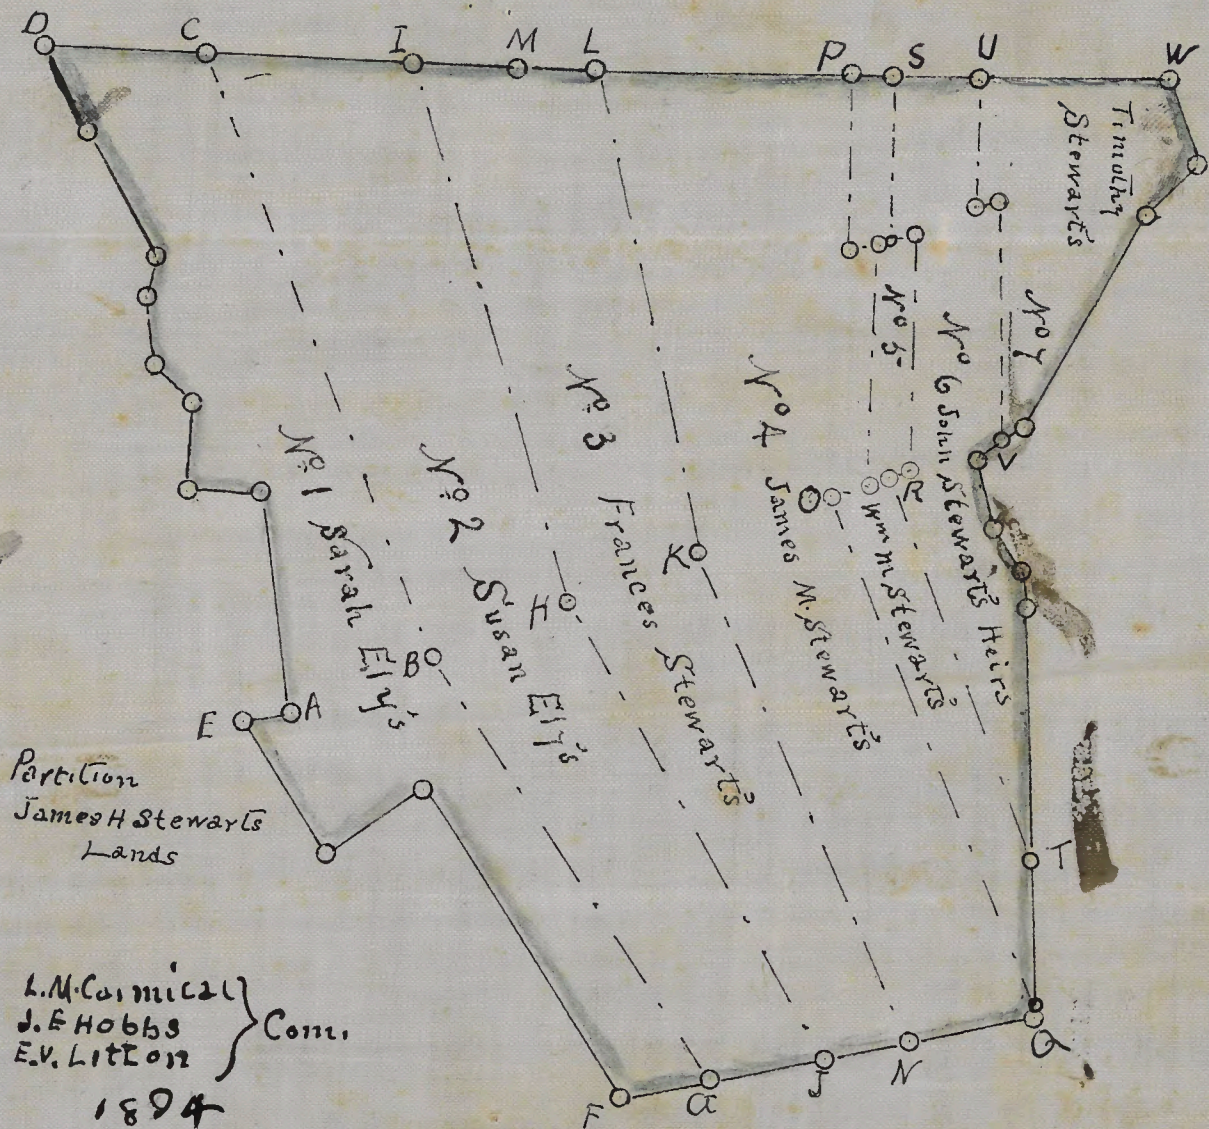 D C I M L P S U W
Timothy
Stewarts
No 7
No 6 John Stewart's Heirs
No 5
Wm M Stewart's
No 4 James M. Stewart's
No. 3 Frances Stewart's
No. 2 Susan Ely's
No. 1 Sarah Ely's
V
R
O
K
H
B
A
E
T
Partition
James H Stewarts
Lands
L.M. Carmical
J. E Hobbs
E.V. Litton
Com.
1894
F G J N Q